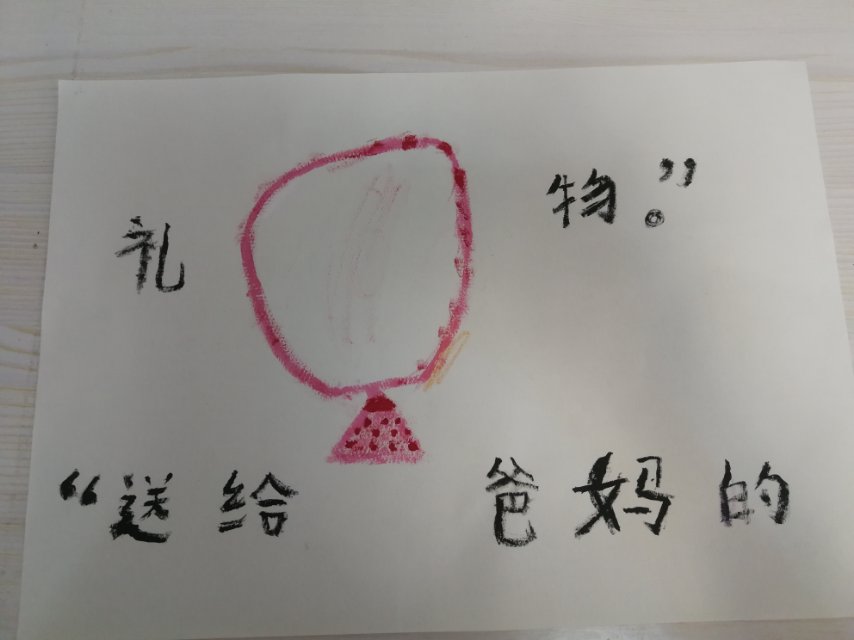 “送给 爸妈的
礼 物。”